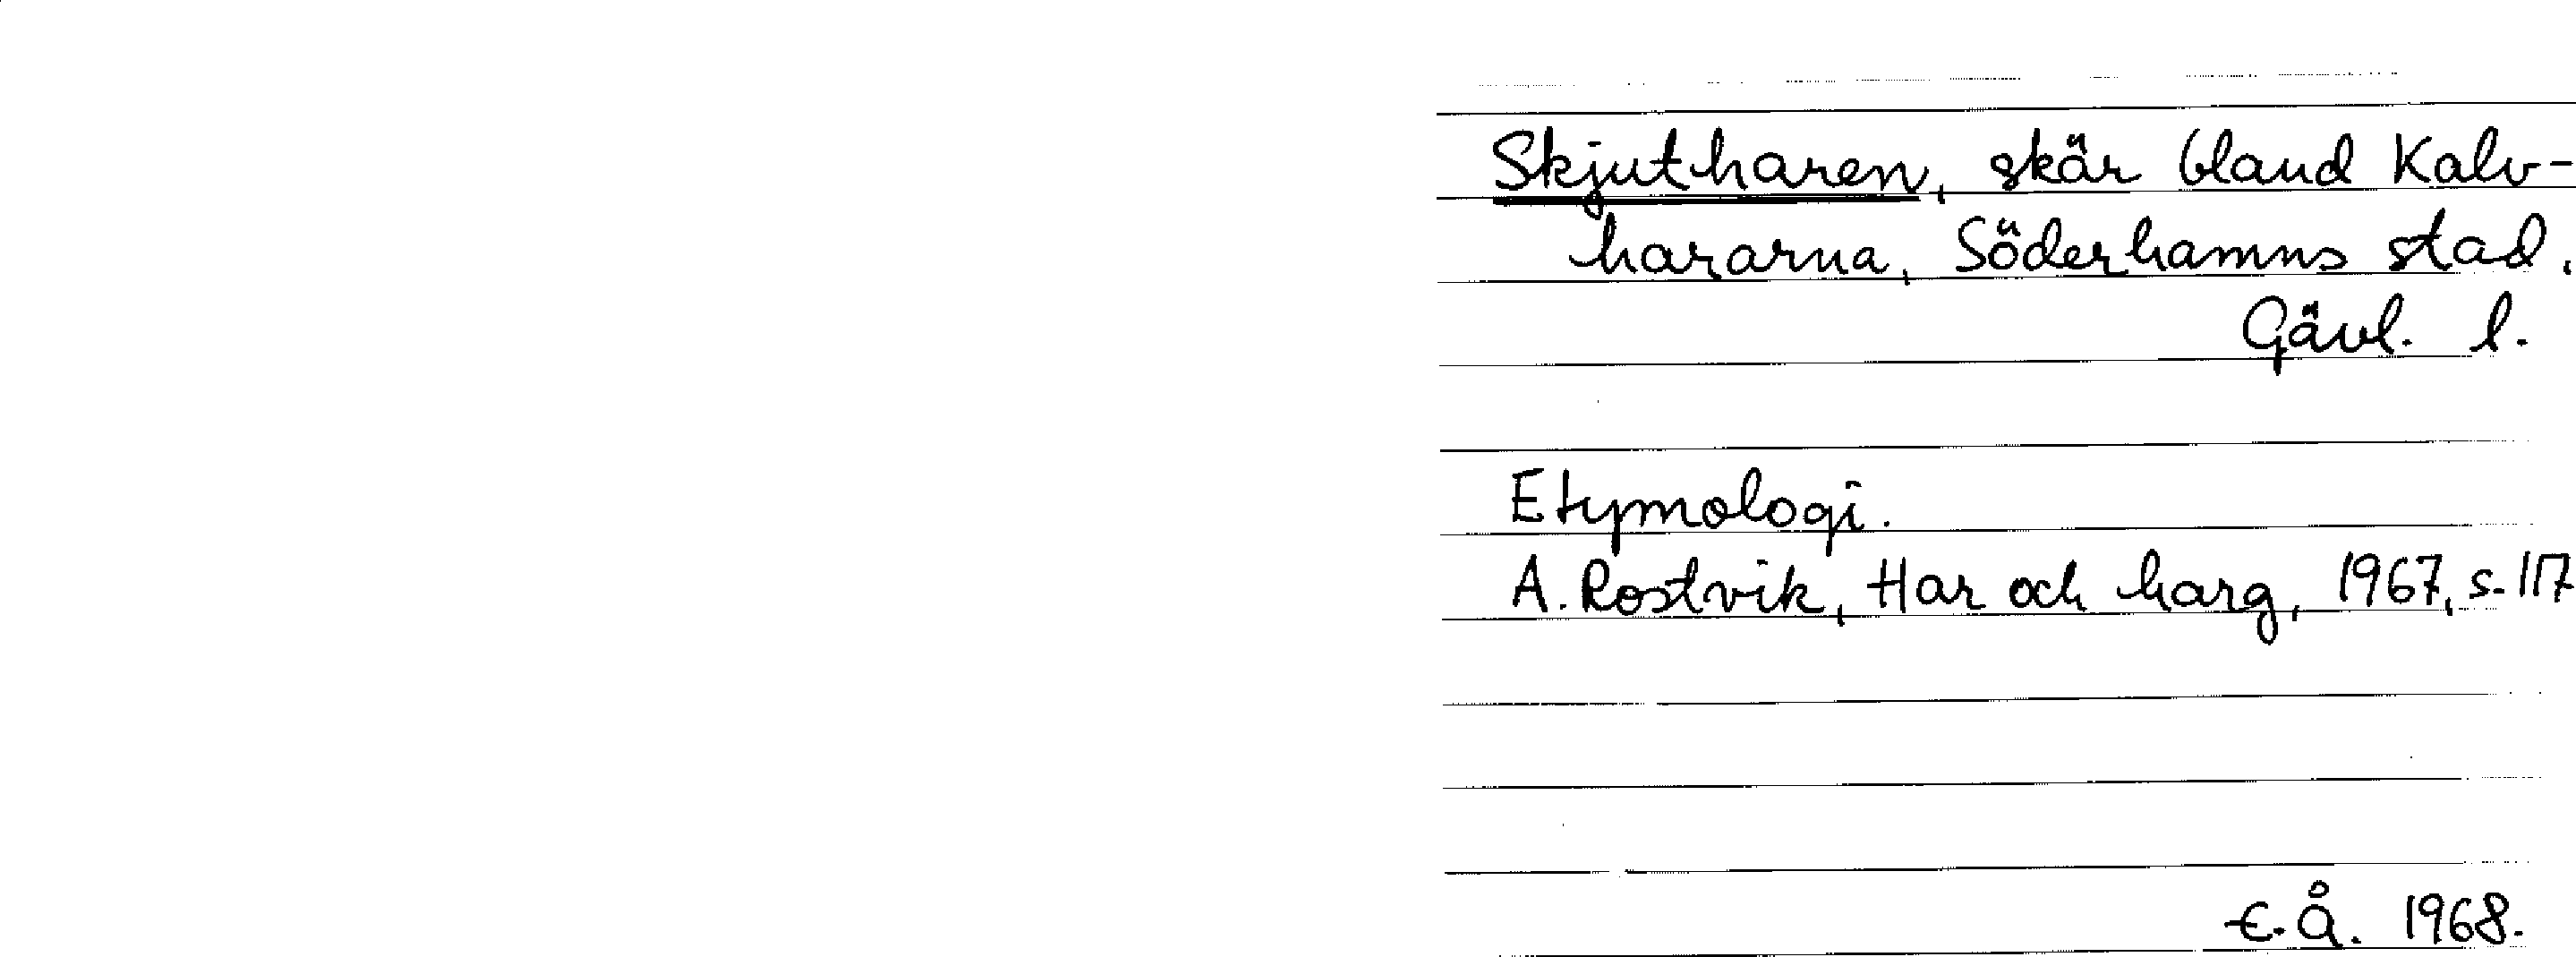 Skjutharen, skär bland Kalv-
hararna, Söderhamns stad,
Gävl. l.
Etymologi.
A. Rostvik, Har och harg, 1967, s. 117
E. Å. 1968.